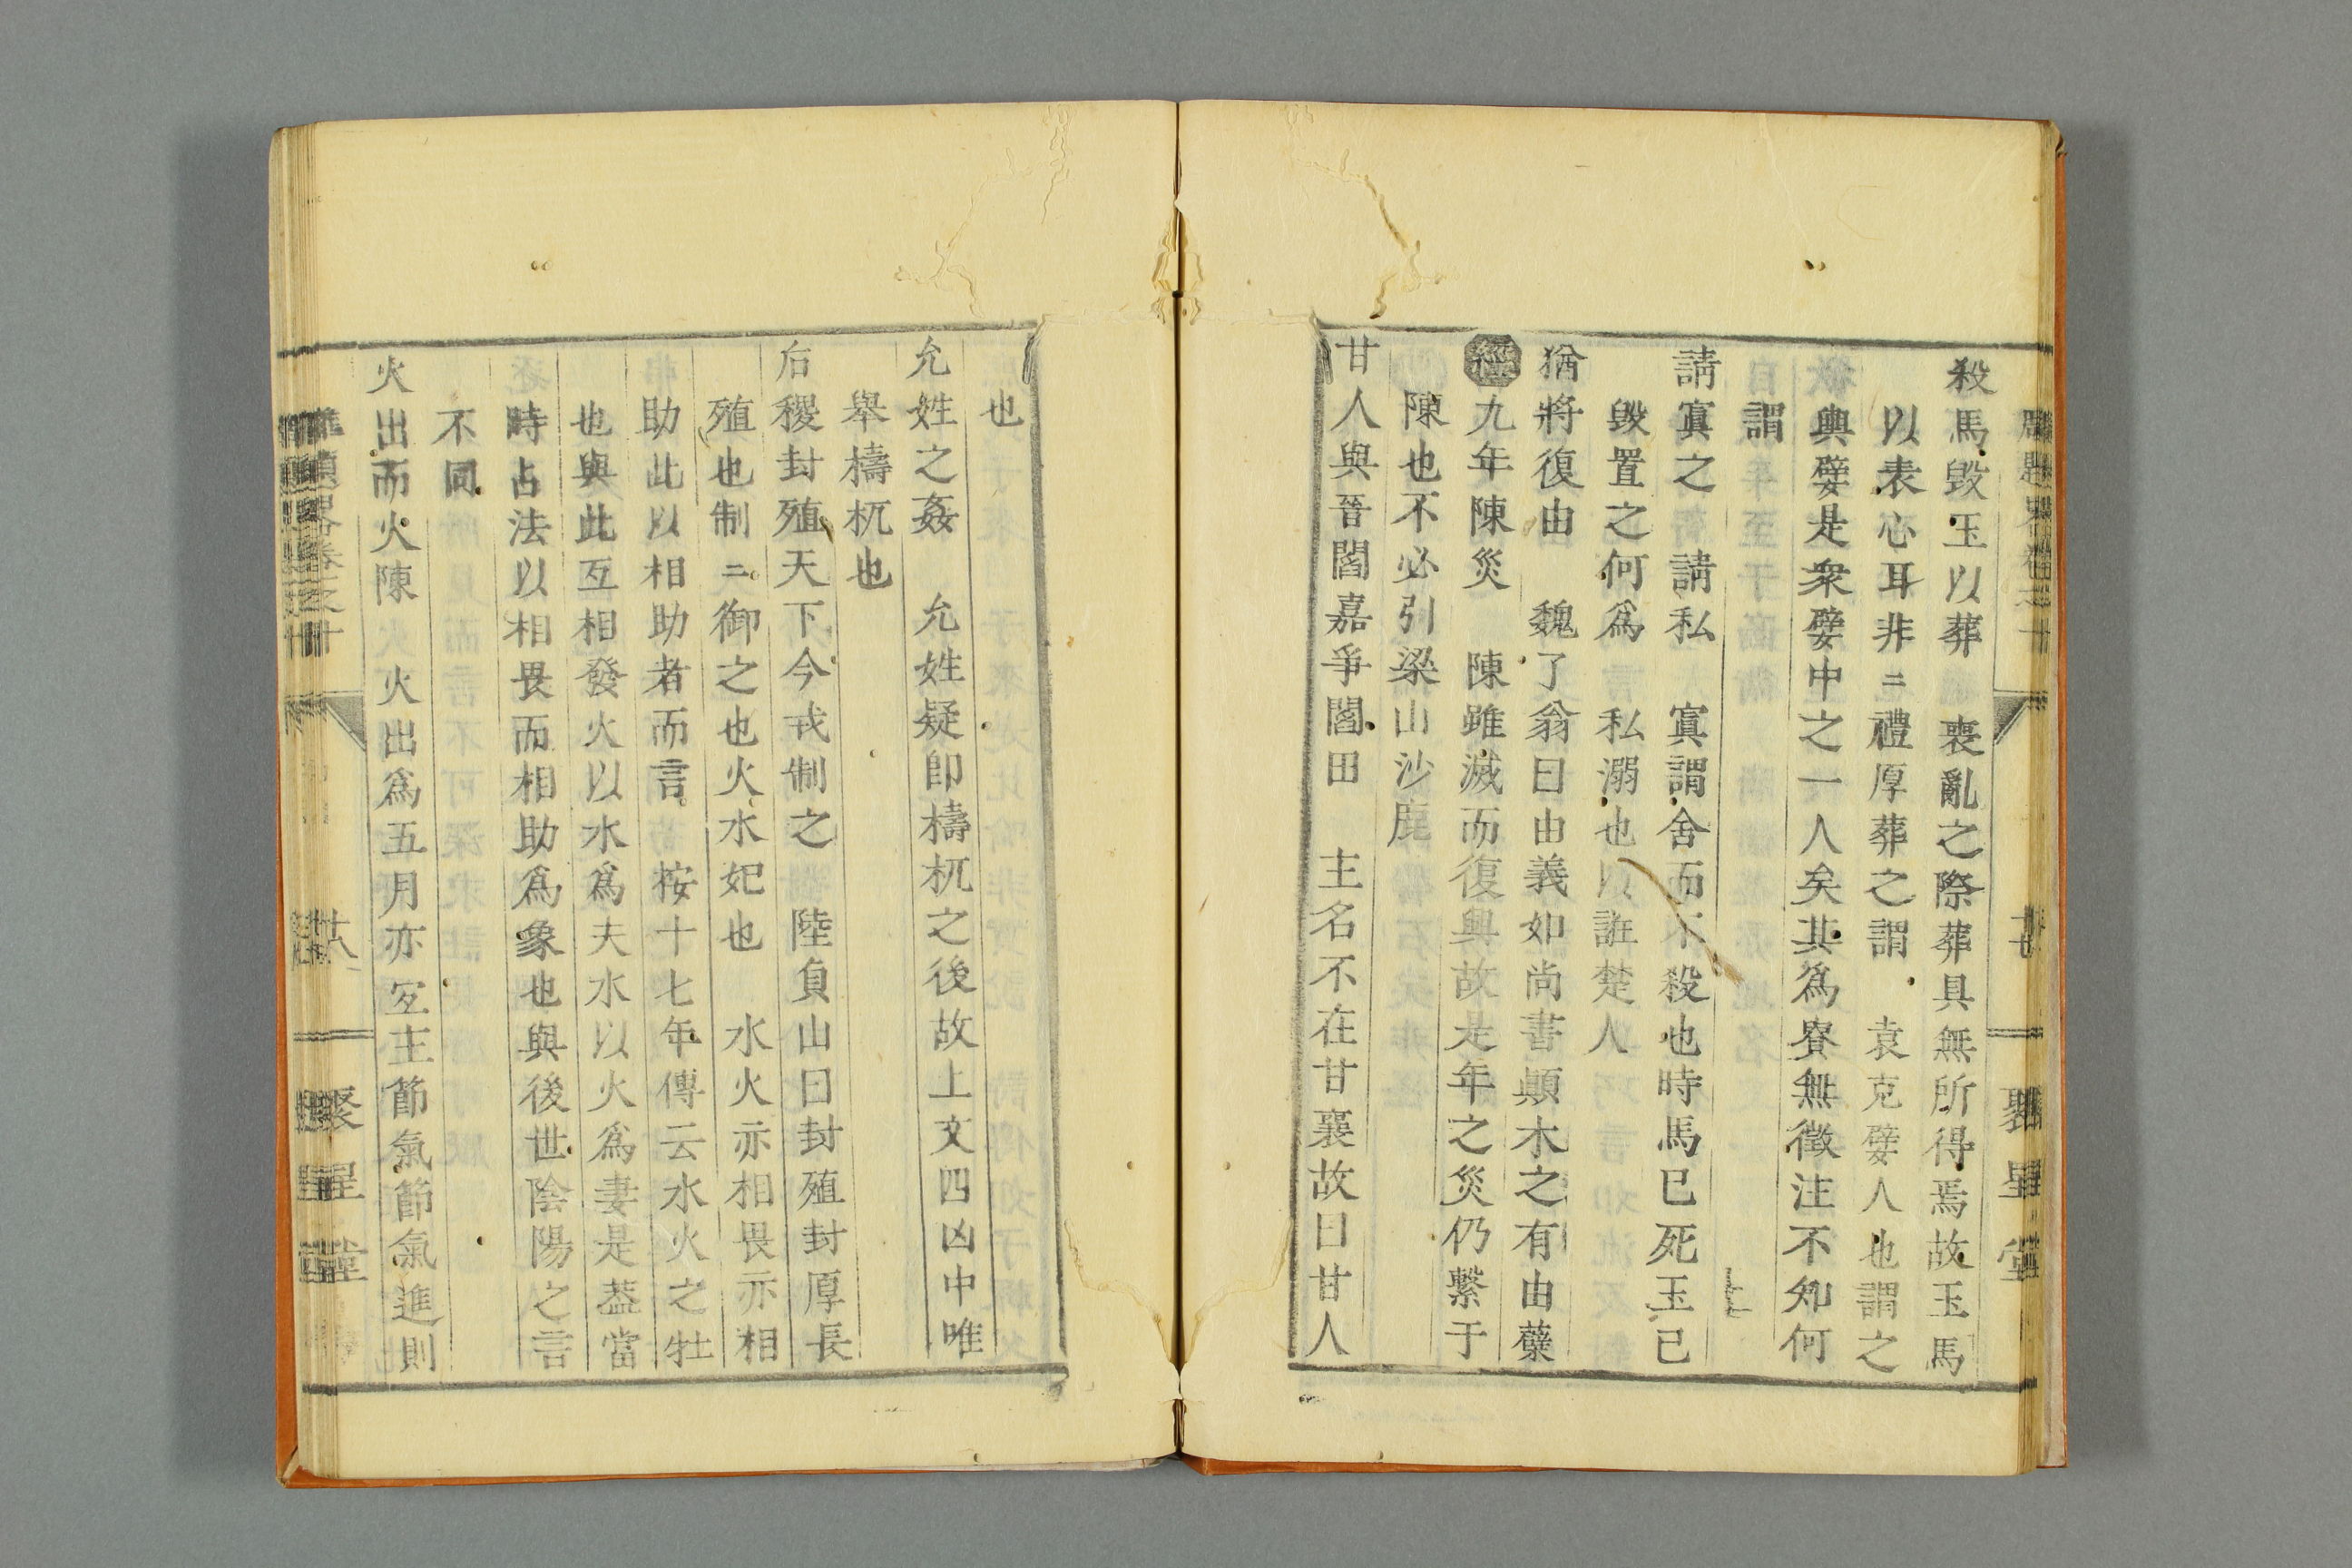 殺馬毀玉以葬　喪亂之際葬具無所得焉故玉馬
以表心耳非二禮厚葬之謂　袁克嬖人也謂之
輿嬖是衆嬖中之一人矣其爲賽無徵注不知何
謂
請寘之　請私　寘謂舍而不殺也時馬已死玉已
毀置之何爲　私溺也以誑楚人
猶將復由　魏了翁曰由義如尚書顚木之有由蘖
經九年陳災　陳雖滅而復興故是年之災仍繫于
陳也不必引梁山沙鹿
甘人與晉閻嘉爭閻田　主名不在甘襄故曰甘人
也
允姓之姦　允姓疑卽檮杌之後故上文四凶中唯
舉檮杌也
后稷封殖天下今戎制之　陸貞山曰封殖封厚長
殖也制二御之也火水妃也　水火亦相畏亦相
助此以相助者而言　按十七年傳云水火之牡
也與此互相發火以水爲夫水以火爲妻是葢當
時占法以相畏而相助爲象也與後世陰陽之言
不同
火出而火陳　火出爲五月亦宐主節氣節氣進則
卷之十
廿八
聚星堂